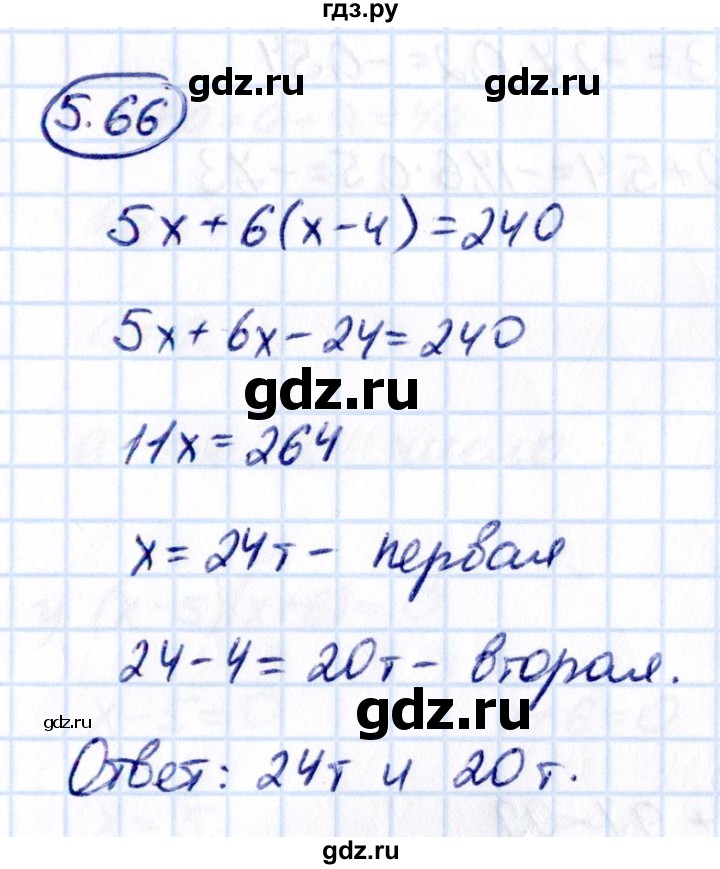 гдз.ру
gdz.ru
gdz.ru
5.66
5x+6(x-4)=240
5x+6x-24=240
gdz.ru
11x=264
x=24т- первая
24-4=20т- вторая.
gdz.ru
gdz.ru
Ответ: 24т и 20т.
gdz.ru